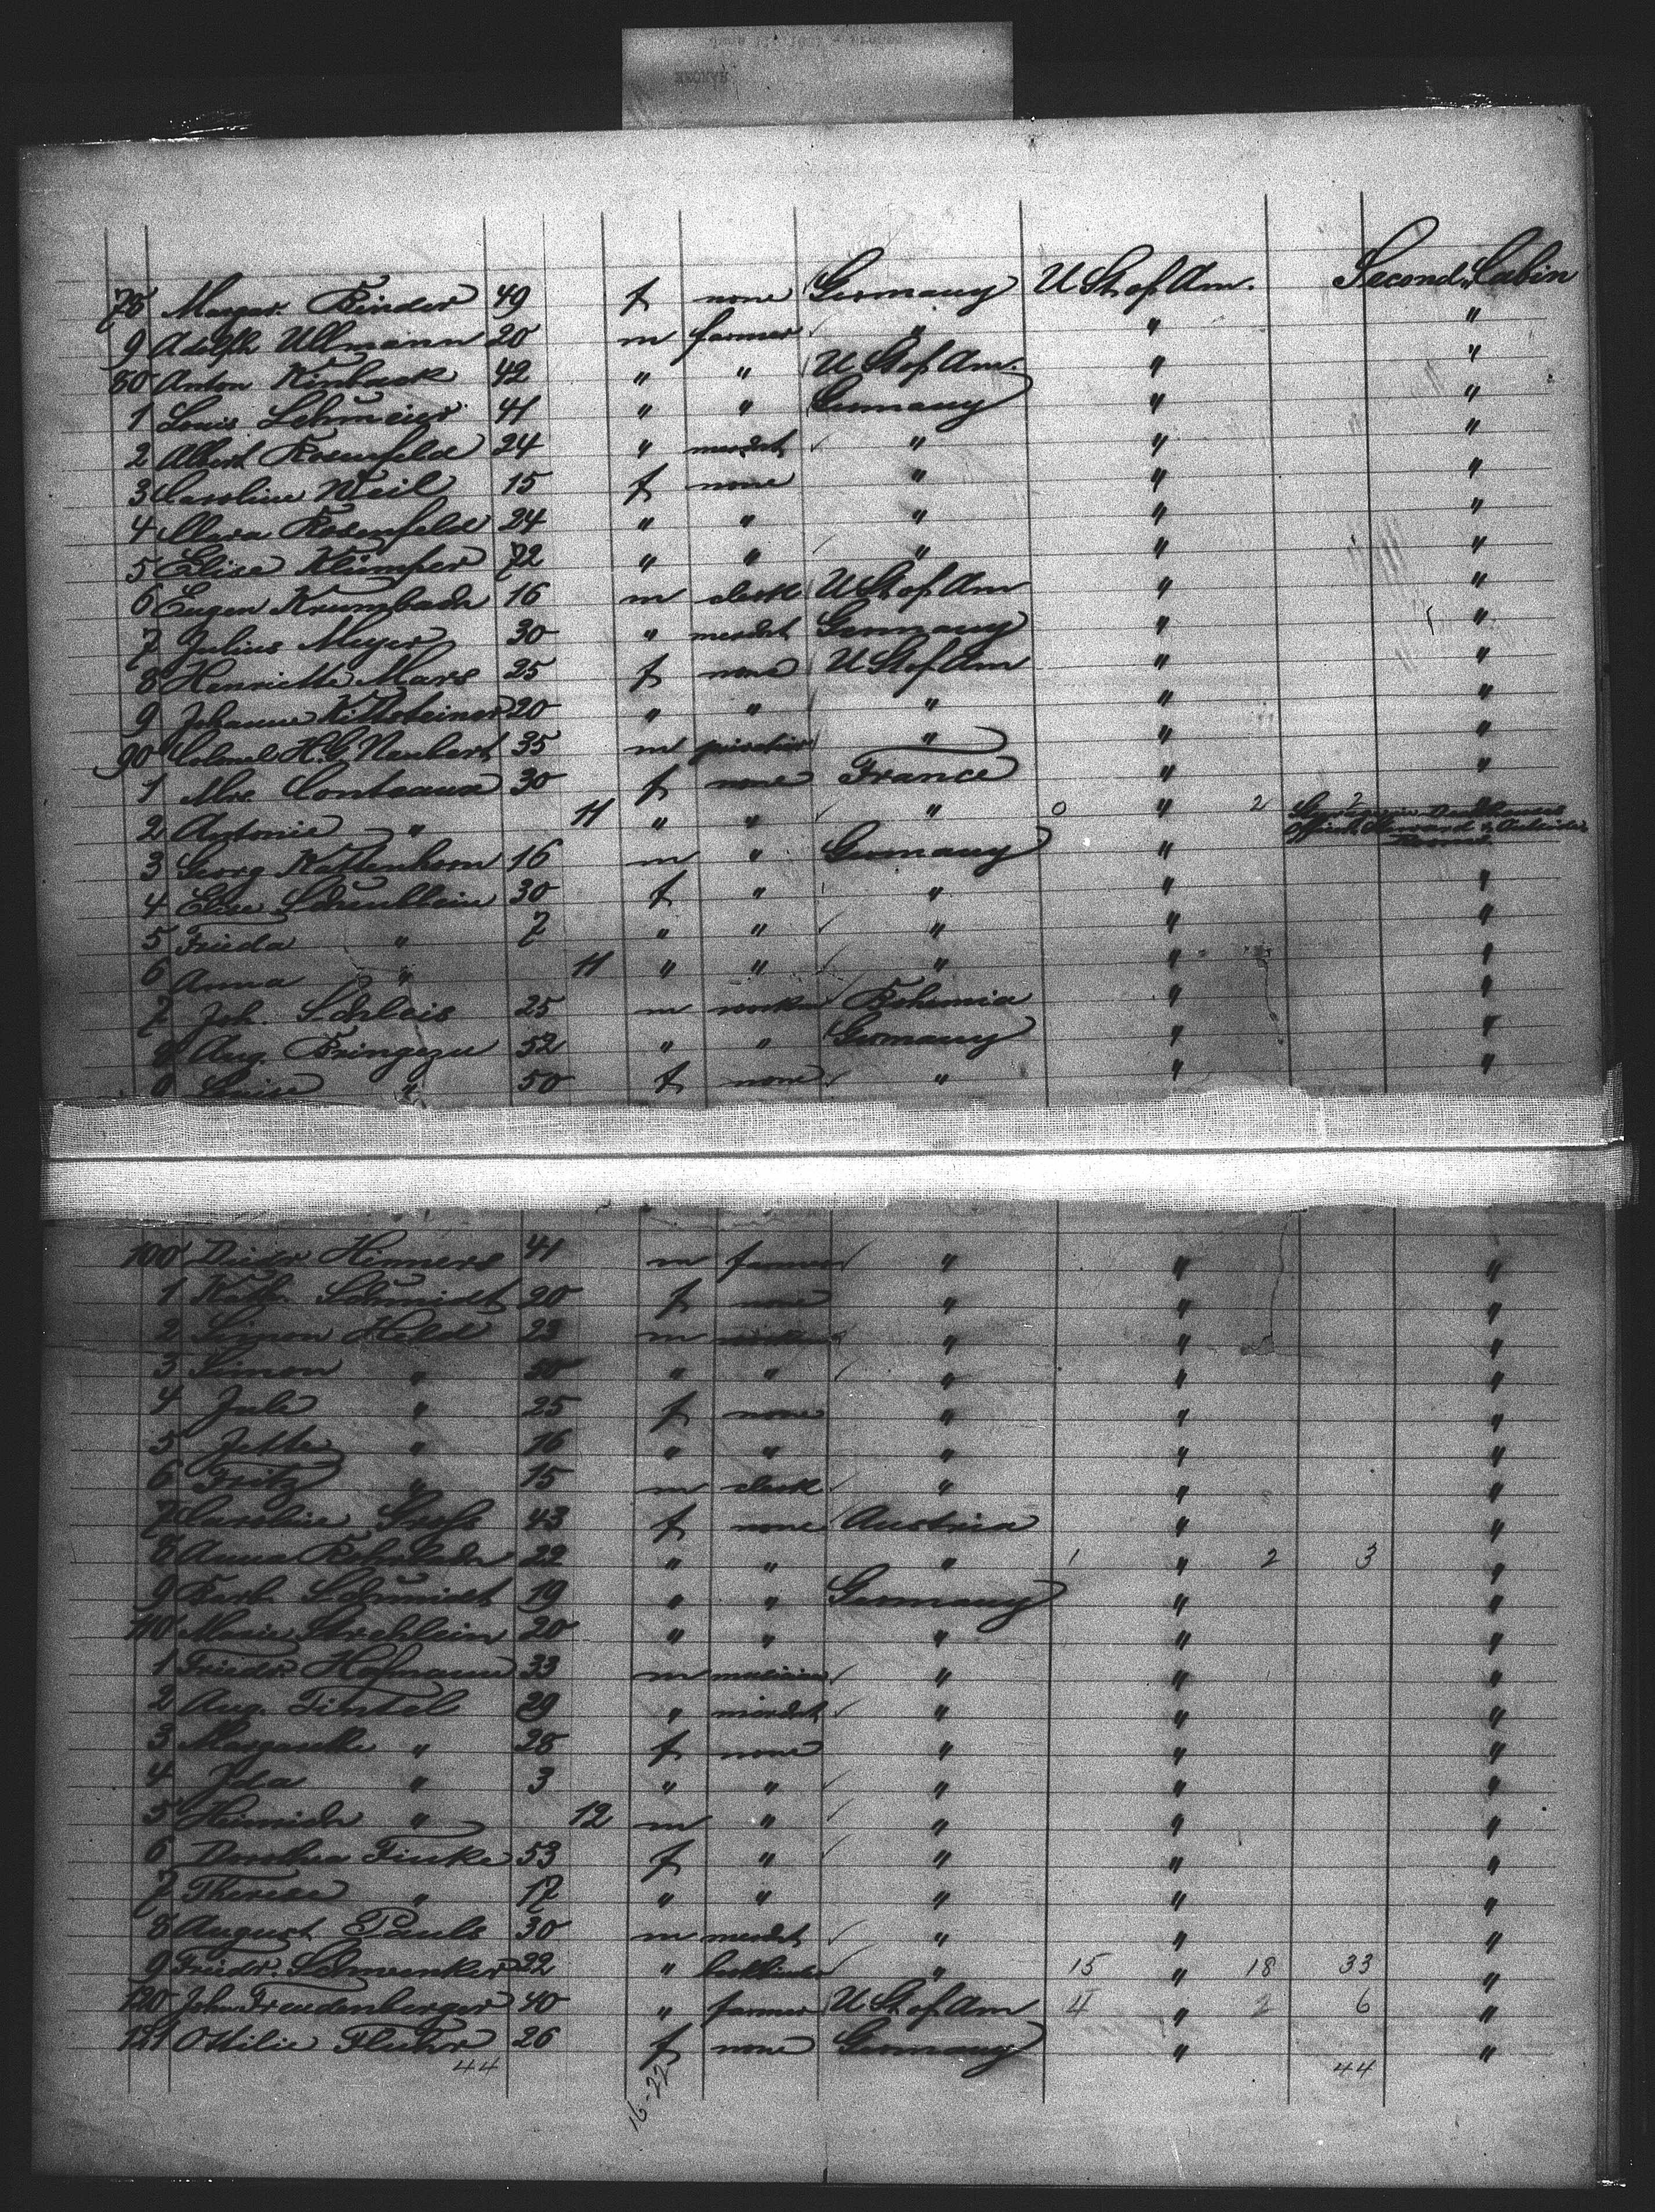 NECKAR
78 Margar. Binder 49 f none Germany U St. of Am. Second Cabin
9 Adolph Ullmann 20 m farmer " " "
80 Anton Kinback 42 " " U St of Am. " "
1 Louis Lehmeier 41 " " Germany " "
2 Albert Rosenfeld 24 " merch't " " "
3 Caroline Weil 15 f none " " "
4 Clara Rosenfeld 24 " " " " "
5 Elise Klümper 72 " " " " "
6 Eugen Krumbach 16 m clerk U St of Am " "
7 Julius Meyer 30 " merch't Germany " "
8 Henriette Mars 25 f none U St of Am " "
9 Johanna Kittsteiner 20 " " " " "
90 Colonel H. C. Neubert 35 m " " "
1 Mrs. Conteaux 30 f none France " "
2 Antonie " 11 " " " 0 " 2 2 "
3 Georg Kattenhorn 16 m " Germany "
4 Elise Scheublein 30 f " " " "
5 Frieda " 7 " " " " "
6 Anna " 11 " " " " "
7 Joh. Schleis 25 m worker Bohemia " "
8 Aug. Bringezu 52 " " Germany " "
9 Louise " 50 f none " " "
100 Diedr. Hinners 41 m farmer " " "
1 Kath. Schmidt 20 f none " " "
2 Simon Held 23 m " " "
3 Simon " 50 " " " " "
4 Jule " 25 f none " " "
5 Jette " 16 " " " " "
6 Fritz " 15 m clerk " " "
7 Caroline Grofs 43 f none Austria " "
8 Anna 22 " " " 1 " 2 3 "
9 Barb. Schmidt 19 " " Germany " "
110 Marie Strehlein 20 " " " " "
1 Friedr. Hofmann 33 m musician " " "
2 Aug. Tintel 29 " merch't " " "
3 Margarethe " 28 f none " " "
4 Ida " 3 " " " " "
5 Heinrich " 12 m " " " "
6 Dorothea Finke 53 f " " " "
7 Therese " 17 " " " " "
8 August Pauls 30 m merch't " " "
9 Friedr. Schwenker 22 " bookbinder " 15 " 18 33 "
120 John Freudenberger 40 " farmer U St. of Am 4 " 2 6 "
121 Ottilie Fluhr 26 f none Germany " "
44 16-22 44